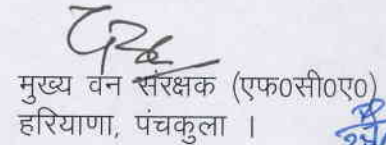 मुख्य वन संरक्षक (एफ0सी0ए0)
हरियाणा, पंचकुला ।